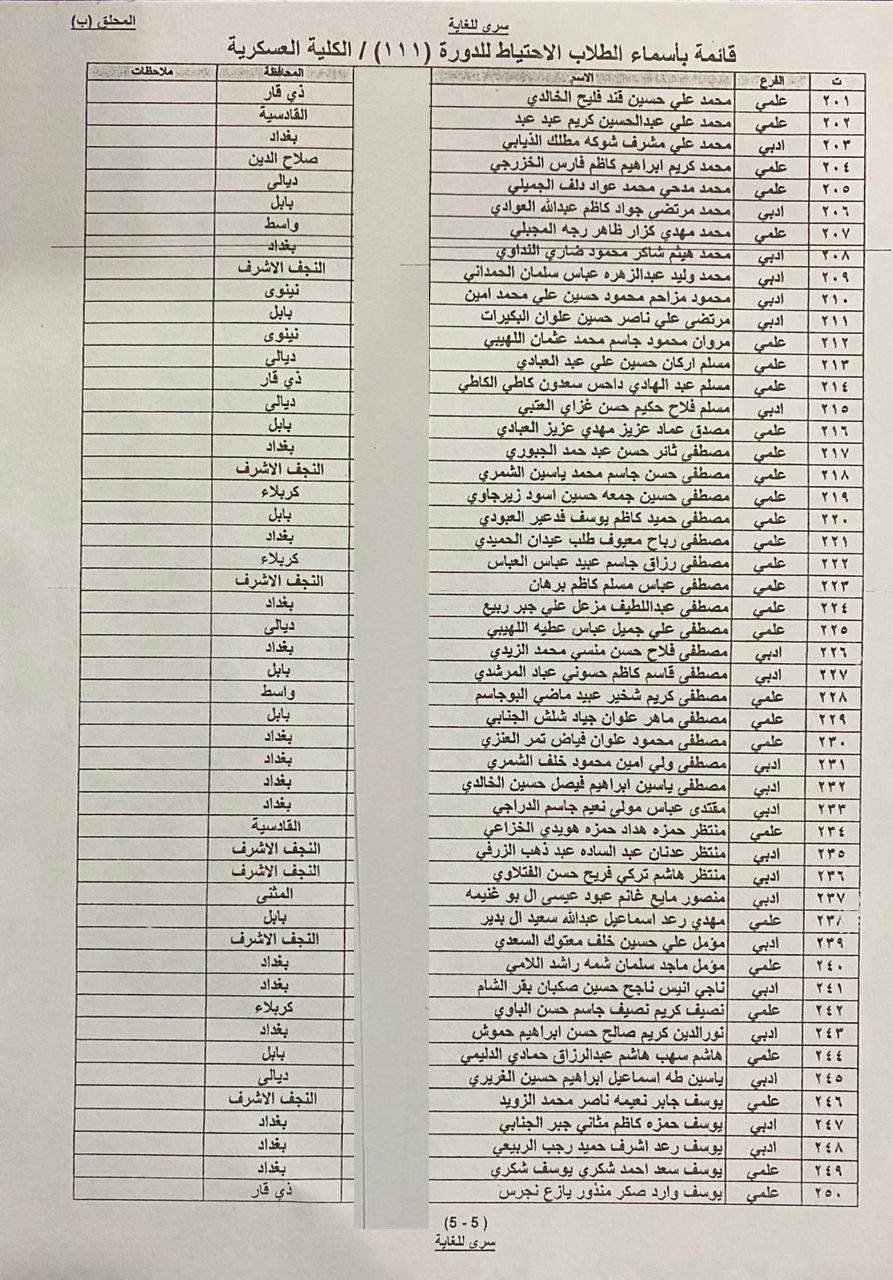 سري للغاية
المحلق (ب)
قائمة بأسماء الطلاب الاحتياط للدورة (١١١) / الكلية العسكرية
ت الفرع الاسم المحافظة ملاحظات
٢٠١ علمي محمد علي حسين قند فليح الخالدي ذي قار
٢٠٢ علمي محمد علي عبدالحسين كريم عبد عبد القادسية
٢٠٣ ادبي محمد علي مشرف شوكه مطلك الذيابي بغداد
٢٠٤ علمي محمد كريم ابراهيم كاظم فارس الخزرجي صلاح الدين
٢٠٥ علمي محمد مدحي محمد عواد دلف الجميلي ديالى
٢٠٦ ادبي محمد مرتضى جواد كاظم عبدالله العوادي بابل
٢٠٧ علمي محمد مهدي كزار ظاهر رجه المجبلي واسط
٢٠٨ ادبي محمد هيثم شاكر محمود ضاري النداوي بغداد
٢٠٩ ادبي محمد وليد عبدالزهره عباس سلمان الحمداني النجف الاشرف
٢١٠ ادبي محمود مزاحم محمود حسين علي محمد امين نينوى
٢١١ ادبي مرتضى علي ناصر حسين علوان البكيرات بابل
٢١٢ علمي مروان محمود جاسم محمد عثمان اللهيبي نينوى
٢١٣ علمي مسلم اركان حسين علي عبد العبادي ديالى
٢١٤ علمي مسلم عبد الهادي داحس سعدون كاطي الكاطي ذي قار
٢١٥ ادبي مسلم فلاح حكيم حسن غزاي العتبي ديالى
٢١٦ علمي مصدق عماد عزيز مهدي عزيز العبادي بابل
٢١٧ علمي مصطفى ثائر حسن عبد حمد الجبوري بغداد
٢١٨ علمي مصطفى حسن جاسم محمد ياسين الشمري النجف الاشرف
٢١٩ علمي مصطفى حسين جمعه حسين اسود زيرجاوي كربلاء
٢٢٠ علمي مصطفى حميد كاظم يوسف فدعير العبودي بابل
٢٢١ علمي مصطفى رباح معيوف طلب عيدان الحميدي بغداد
٢٢٢ علمي مصطفى رزاق جاسم عبيد عباس العباس كربلاء
٢٢٣ علمي مصطفى عباس مسلم كاظم برهان النجف الاشرف
٢٢٤ علمي مصطفى عبداللطيف مزعل علي جبر ربيع بغداد
٢٢٥ علمي مصطفى علي جميل عباس عطيه اللهيبي ديالى
٢٢٦ ادبي مصطفى فلاح حسن منسي محمد الزيدي بغداد
٢٢٧ ادبي مصطفى قاسم كاظم حسوني عباد المرشدي بابل
٢٢٨ علمي مصطفى كريم شخير عبيد ماضي البوجاسم واسط
٢٢٩ علمي مصطفى ماهر علوان جياد شلش الجنابي بابل
٢٣٠ علمي مصطفى محمود علوان فياض تمر العنزي بغداد
٢٣١ ادبي مصطفى ولي امين محمود خلف الشمري بغداد
٢٣٢ ادبي مصطفى ياسين ابراهيم فيصل حسين الخالدي بغداد
٢٣٣ ادبي مقتدى عباس مولى نعيم جاسم الدراجي بغداد
٢٣٤ علمي منتظر حمزه هداد حمزه هويدي الخزاعي القادسية
٢٣٥ ادبي منتظر عدنان عبد الساده عبد ذهب الزرفي النجف الاشرف
٢٣٦ ادبي منتظر هاشم تركي فريح حسن الفتلاوي النجف الاشرف
٢٣٧ ادبي منصور مايع غانم عبود عيسى ال بو غنيمه المثنى
٢٣٨ علمي مهدي رعد اسماعيل عبدالله سعيد ال بدير بابل
٢٣٩ ادبي مؤمل علي حسين خلف معتوك السعدي النجف الاشرف
٢٤٠ علمي مؤمل ماجد سلمان شمه راشد اللامي بغداد
٢٤١ ادبي ناجي انيس ناجح حسين صكبان بقر الشام بغداد
٢٤٢ علمي نصيف كريم نصيف جاسم حسن الباوي كربلاء
٢٤٣ ادبي نورالدين كريم صالح حسن ابراهيم حموش بغداد
٢٤٤ علمي هاشم سهب هاشم عبدالرزاق حمادي الدليمي بابل
٢٤٥ ادبي ياسين طه اسماعيل ابراهيم حسين الغريري ديالى
٢٤٦ علمي يوسف جابر نعيمه ناصر محمد الزويد النجف الاشرف
٢٤٧ ادبي يوسف حمزه كاظم مثاني جبر الجنابي بغداد
٢٤٨ ادبي يوسف رعد اشرف حميد رجب الربيعي بغداد
٢٤٩ علمي يوسف سعد احمد شكري يوسف شكري بغداد
٢٥٠ علمي يوسف وارد صكر منذور يازع نجرس ذي قار
(5 - 5)
سري للغاية